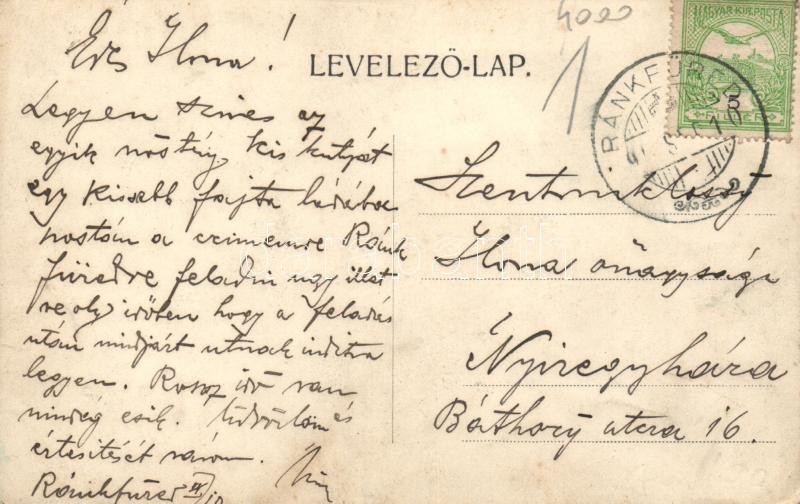 4000
Édes Ilona!
LEVELEZŐ-LAP.
MAGYAR KIR. POSTA
5
FILLÉR
RÁNKFÜRED
Legyen szives az
egyik nöstény kis kutyát
egy kissebb fajta ládába
postán a czimemre Ránk
füredre feladni ugy illet
ve oly időben hogy a feladás
után mindjárt utnak inditva
legyen. Rossz idő van
mindég esik. Üdvözlöm és
értesitését várom.
Ránkfüred
Szentmiklossy
Ilona őnagysága
Nyiregyháza
Báthory utcza 16.